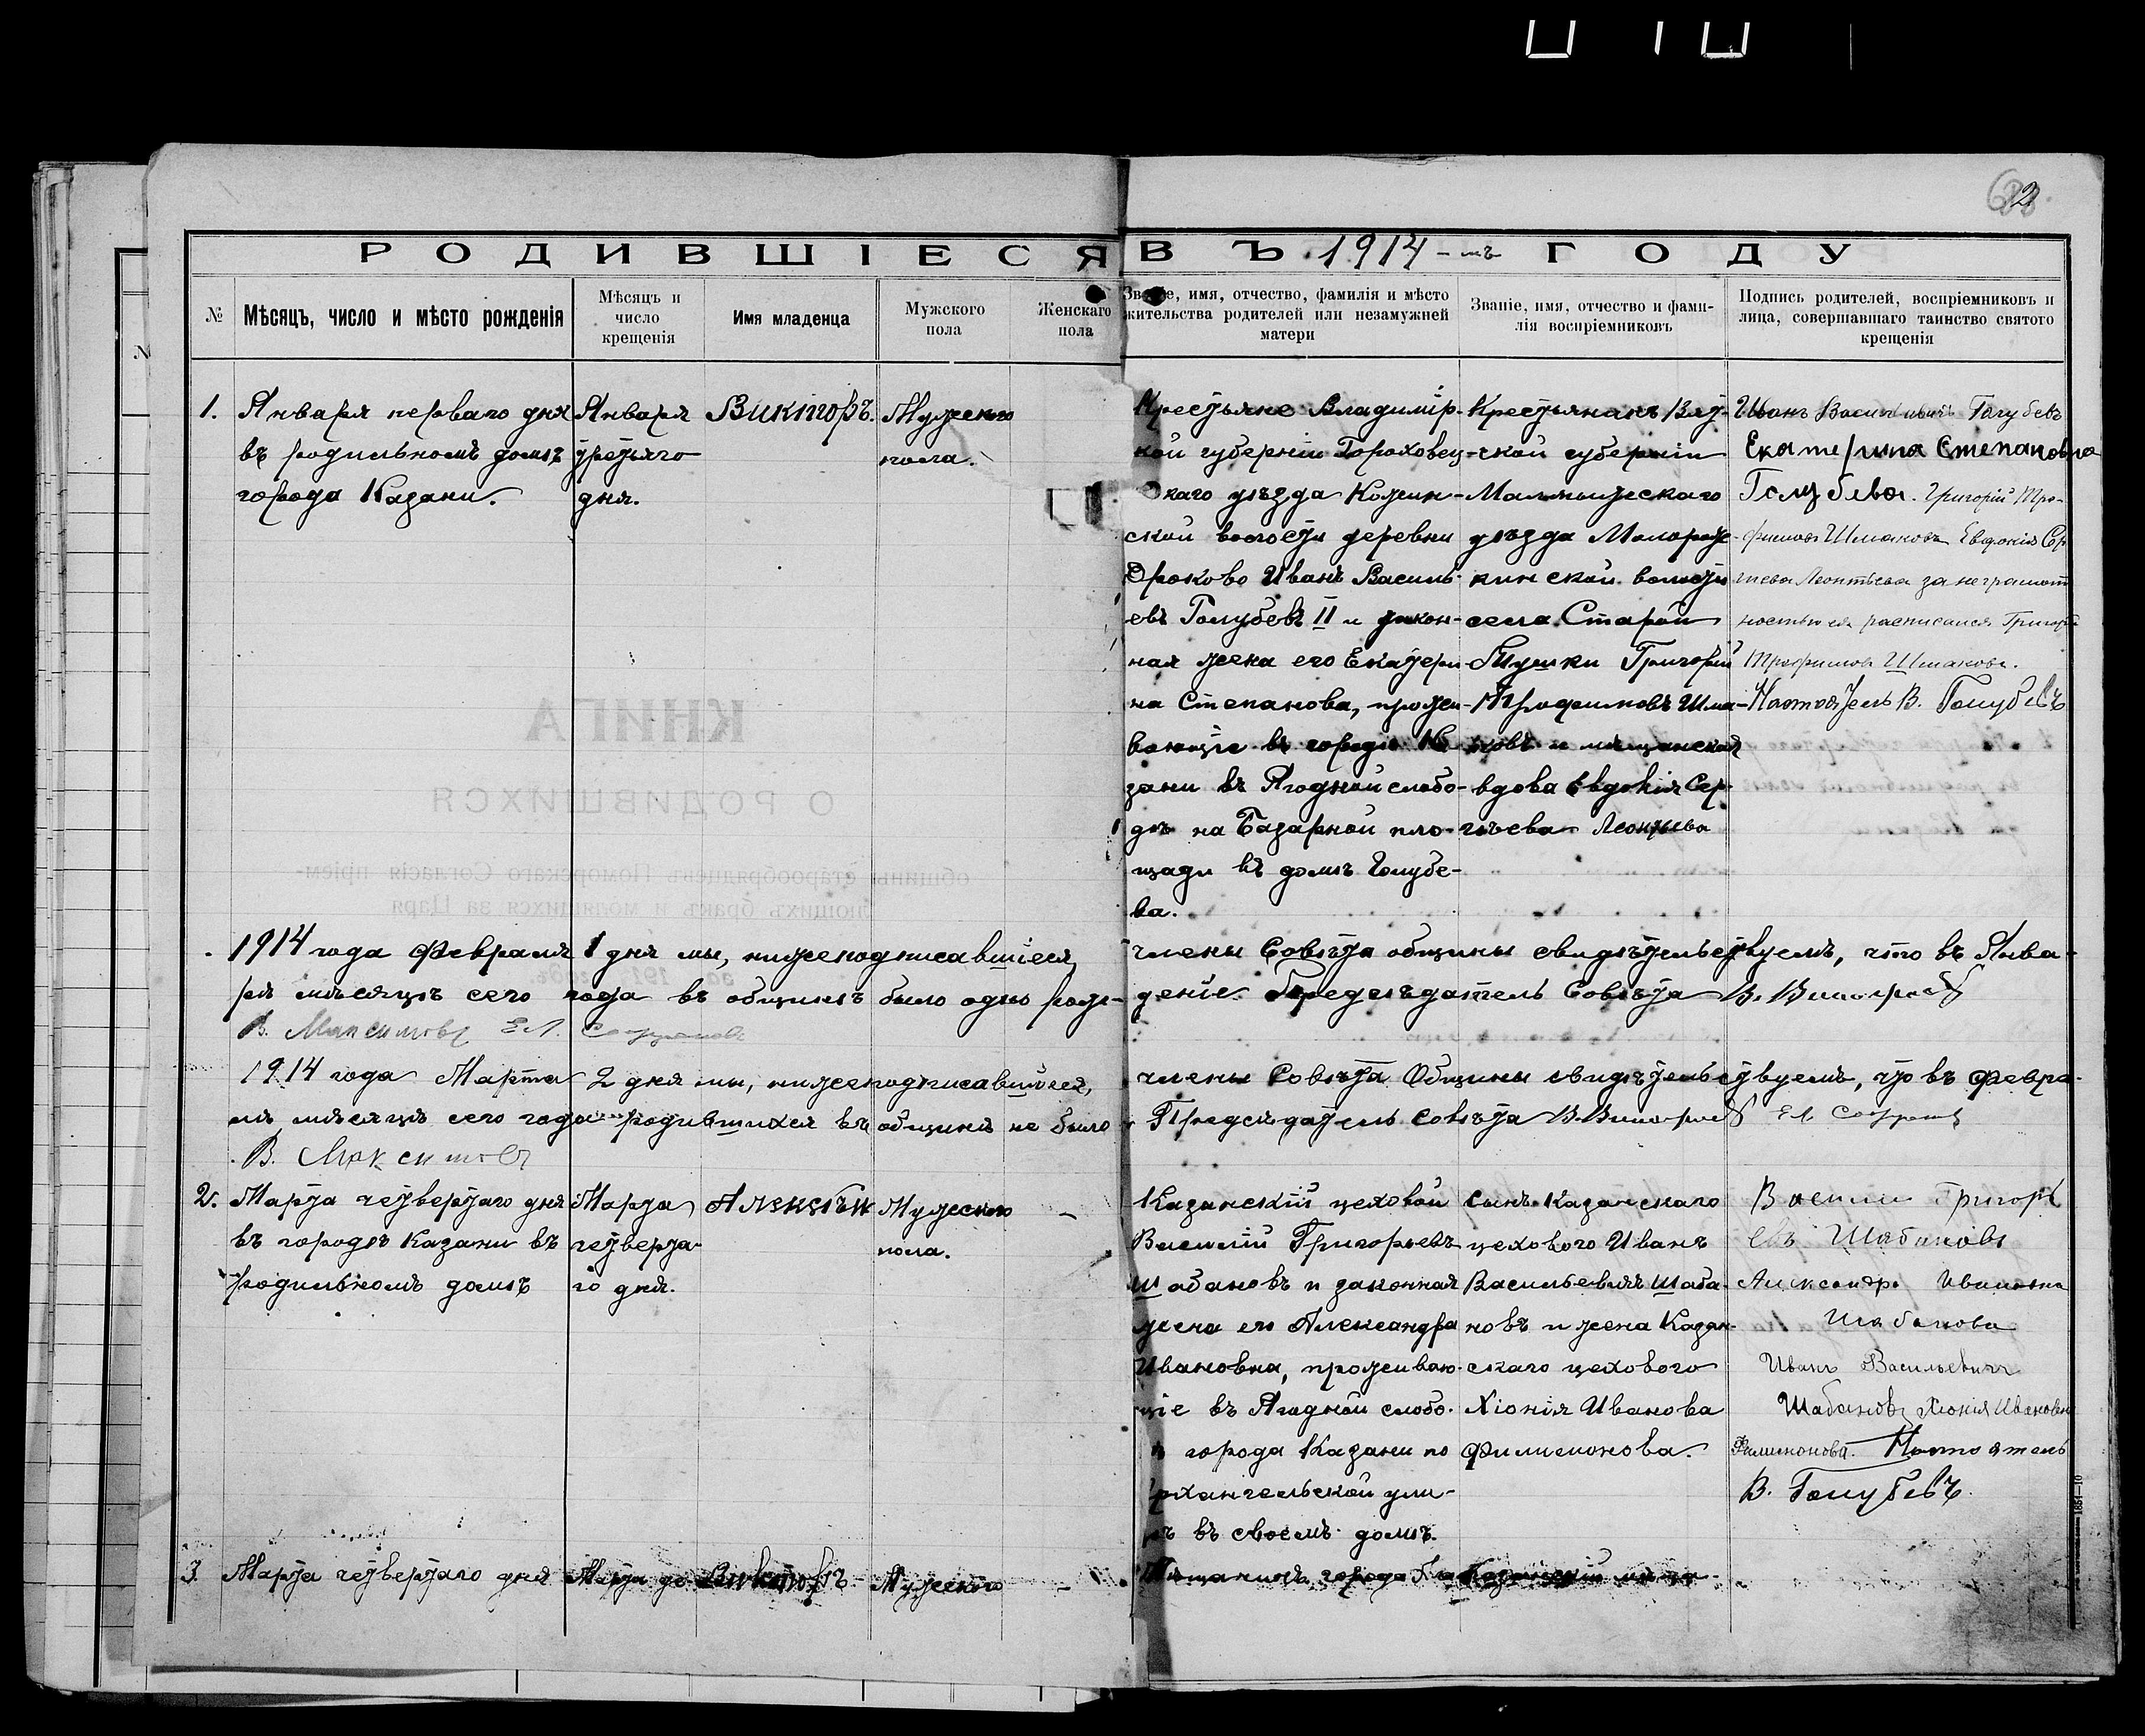 2
РОДИВШІЕСЯ ВЪ 1914-мъ ГОДУ
№
Мѣсяцъ, число и мѣсто рожденія
Мѣсяцъ и
число
крещенія
Имя младенца
Мужского
пола
Женскаго
пола
Званіе, имя, отчество, фамилія и мѣсто
жительства родителей или незамужней
матери
Званіе, имя, отчество и фами-
лія воспріемниковъ
Подпись родителей, воспріемниковъ и
лица, совершавшаго таинство святого
крещенія
1.
Января перваго дня
въ родильномъ домѣ
города Казани.
Января
третьяго
дня.
Викторъ.
Мужского
пола.
Крестьяне Владимір-
кой губерніи Гороховец-
скаго уѣзда Кожин-
ской волости деревни
Ороково Иванъ Василь-
евъ Голубевъ II и закон-
ная жена его Екатери-
на Степанова, прожи-
вающіе въ городѣ Ка-
зани въ Ягодной слобо-
дѣ на Базарной пло-
щади въ домѣ Голубе-
ва.
Крестьянинъ Вят-
ской губерніи
Малмыжскаго
уѣзда Мало-
кинской волости
села Старой
Тушки Григорій
Трофимовъ Шма-
ковъ и мѣщанская
вдова Евдокія Сер-
гѣева Леонтьева
Иванъ Васильевичъ Голубевъ
Екатерина Степановна
Голубева. Григорій Тро-
фимовъ Шмаковъ Евдокія Сер
гѣева Леонтьева за неграмот
ностью ея расписался Григорій
Трофимовъ Шмаковъ.
Настоятель В. Голубевъ
1914 года Февраля 1 дня мы, нижеподписавшіеся, члены Совѣта общины свидѣтельствуемъ, что въ Янва-
рѣ мѣсяцѣ сего года въ общинѣ было одно рож- деніе. Предсѣдатель Совѣта В.
В. Максимовъ
1914 года Марта 2 дня мы, нижеподписавшіеся, члены Совѣта Общины свидѣтельствуемъ, что въ Февра-
лѣ мѣсяцѣ сего года родившихся въ общинѣ не было Предсѣдатель Совѣта В.
В. Максимовъ
2.
Марта четвертаго дня
въ городѣ Казани въ
родильномъ домѣ
Марта
четверта-
го дня.
Алексѣй
Мужского
пола.
-
Казанскій цеховой
Василій Григорьевъ
Шабановъ и законная
жена его Александра
Ивановна, прожива��-
щіе въ Ягодной слобо-
города Казани по
рхангельской ули-
цѣ въ своемъ домѣ.
Сынъ Казанскаго
цехового Иванъ
Васильевичъ Шаба-
новъ и жена Казан-
скаго цехового
Хіонія Иванова
Филимонова.
Василій Григорь
евъ Шабановъ
Александра Ивановна
Шабанова
Иванъ Васильевичъ
Шабановъ Хіонія Ивановна
Филимонова. Настоятель
В. Голубевъ.
3.
Марта четвертаго дня
Марта
Викторъ
Мужского
-
Мѣщанинъ города
Казанскій
КНИГА
О РОДИВШИХСЯ
общины старообрядцевъ Поморскаго Согласія пріем-
лющихъ бракъ и молящихся за Царя